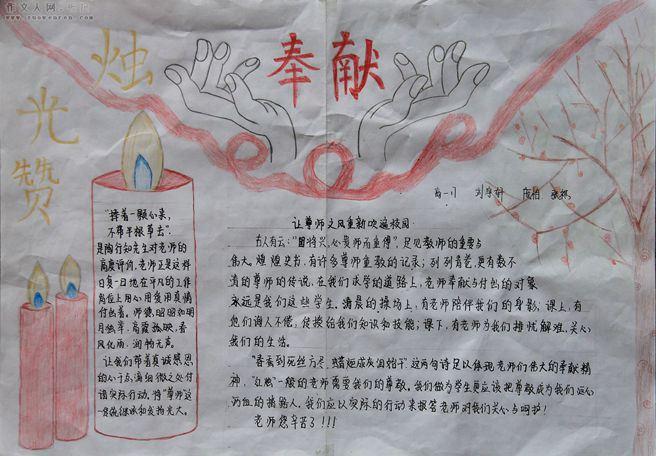 作文人网
www.zuowenren.com
烛光赞
奉献
高一
让尊师之风重新吹遍校园
"捧着一颗心来,
不带半根草去".
是陶行知先生对老师的
高度评价,老师正是这样
日复一日地在平凡的工作
岗位上用心用爱用真情
付出着,师德,昭昭如明
月独举,高霞孤映,春
风化雨,润物无声.
让我们带着真诚感恩
的心,于点滴细微之处付
诸实际行动,将"尊师"这
一美德继承和发扬光大.
古人有云:"国将兴,心贵师而重傅",足见教师的重要与
伟大,煌煌史书,有许多尊师重教的记录;列列青艺,更有数不
清的尊师的传说,在我们求学的道路上,老师奉献与付出的对象
永远是我们这些学生,清晨的操场上,有老师陪伴我们的身影;课上,有
他们诲人不倦,传授给我们知识和技能;课下,有老师为我们排忧解难,关心
我们的生活.
"春蚕到死丝方尽,蜡炬成灰泪始干"这两句诗足以体现老师们伟大的奉献精
神,"红烛"一般的老师需要我们的尊敬,我们做为学生更应该把尊敬成为我们
的 我们应以实际的行动来报答老师对我们关心与呵护!
老师您辛苦了!!!